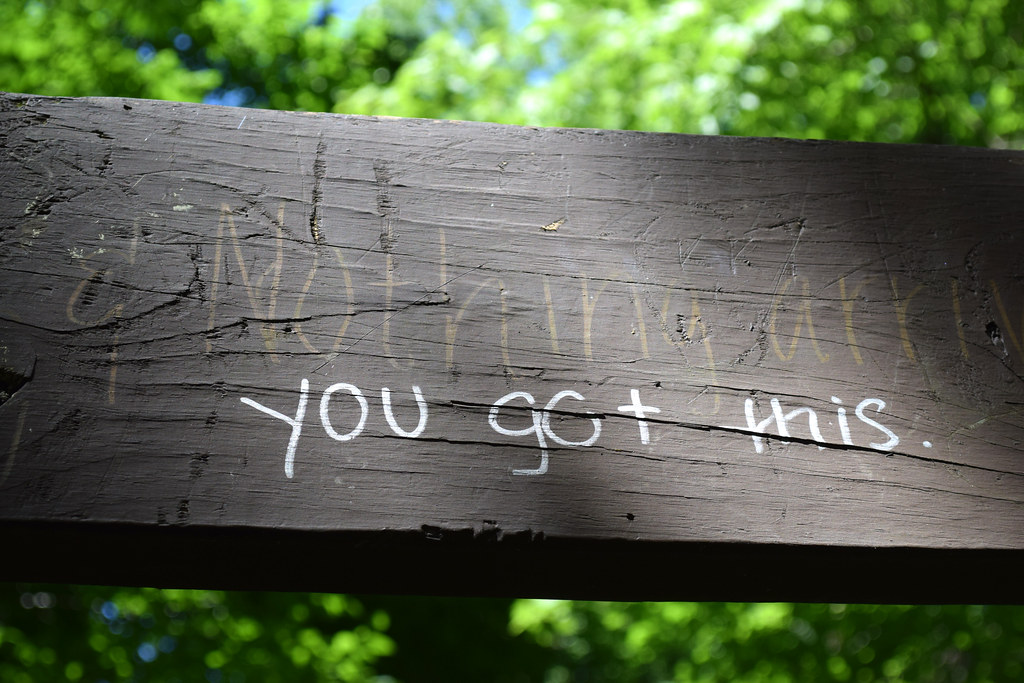 Nothing
you got this.